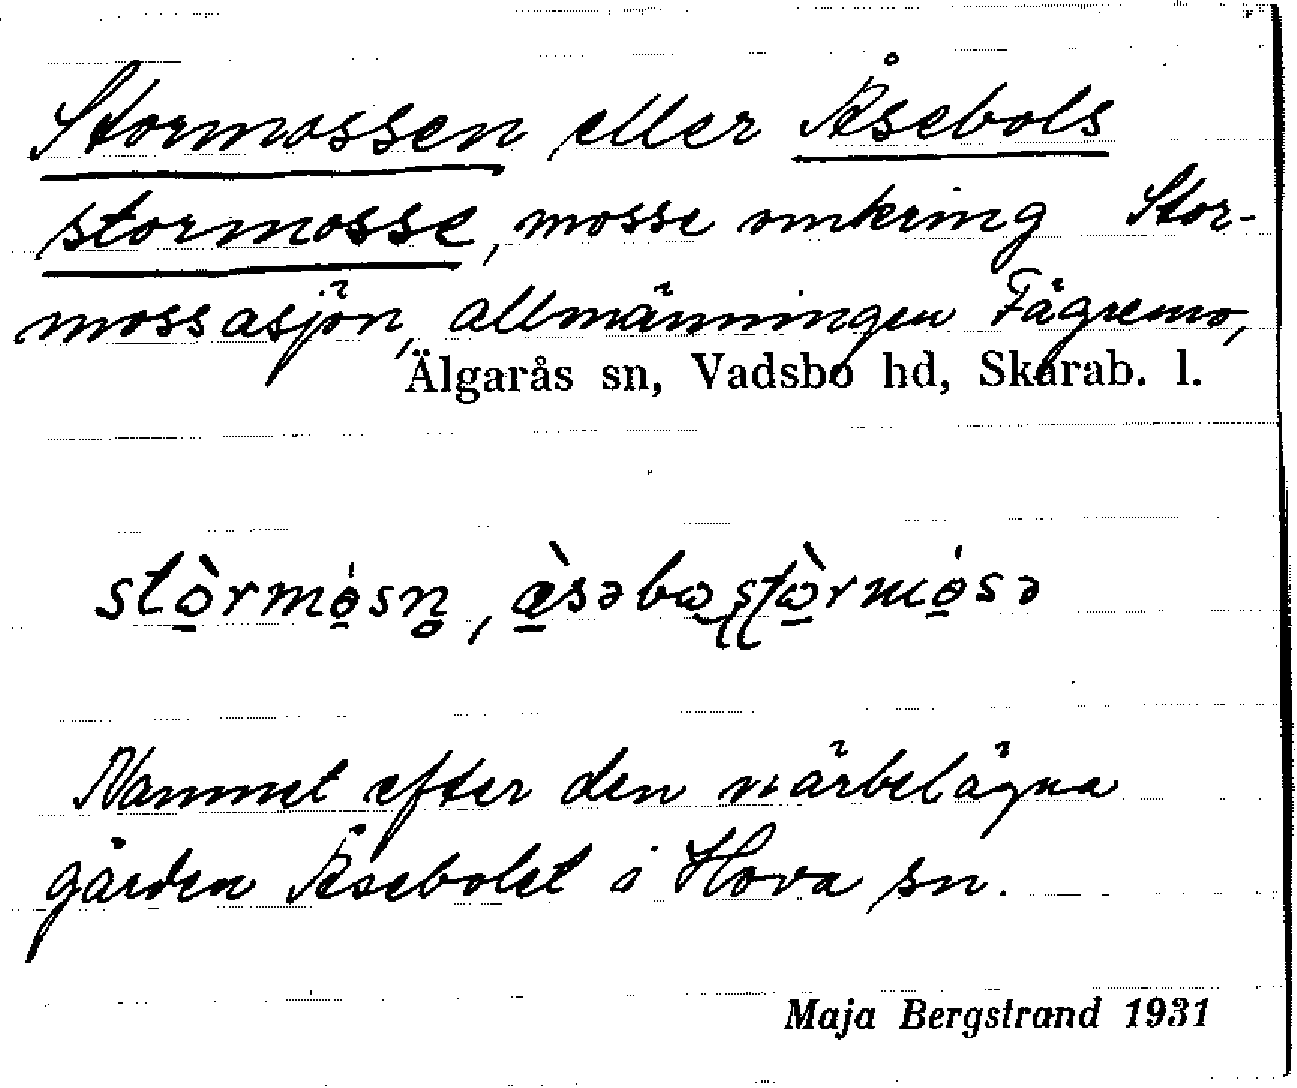 Stormossen eller Åsebols
stormosse, mosse omkring Stor-
mossasjön, allmänningen Fägremo,
Älgarås sn, Vadsbo hd, Skarab. l.
stòrmósn̥,
Namnet efter den närbelägna
gården Åsebolet i Hova sn.
Maja Bergstrand 1931